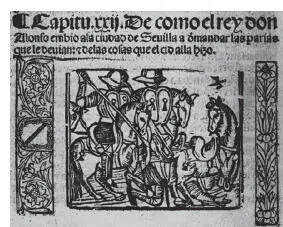 ¶ Capitu. xxij. De como el rey don
Alonso embio ala ciudad de Seuilla a dmandar las parias
que le deuian: ⁊ delas cosas que el cid alla hizo.